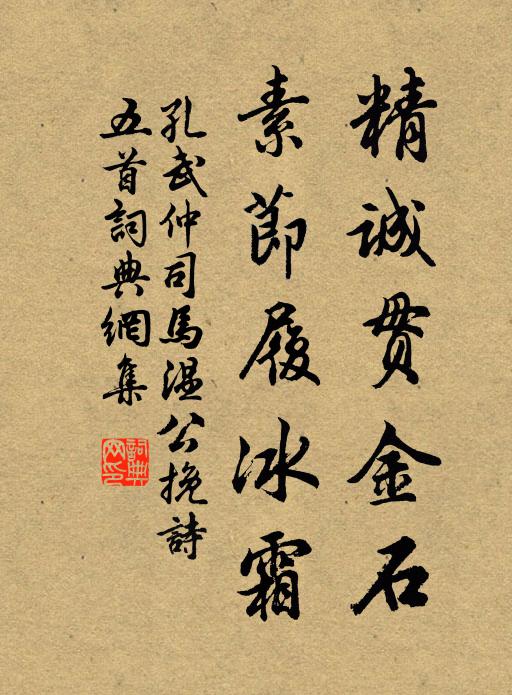 精誠貫金石
素節履冰霜
孔武仲司馬溫公挽詩
五首詞典網集
詞典
网印